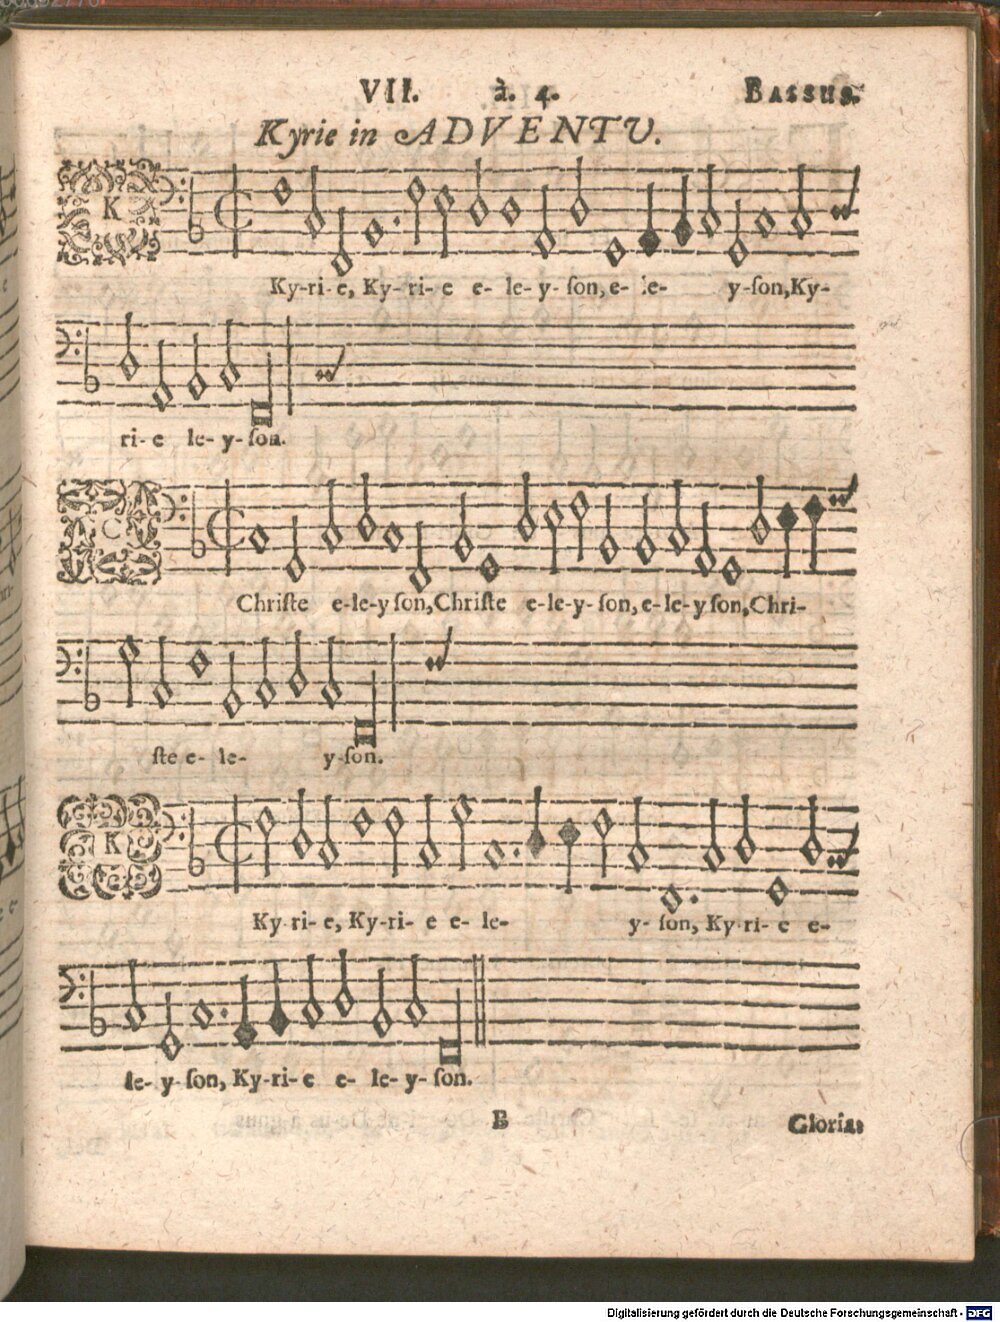 VII. à. 4. BASSUS.
Kyrie in ADVENTU.
K
Ky-ri-e, Ky-ri-e e-le-y-son, e-le- y-son, Ky-
ri-e le-y-son.
C
Christe e-le-y son, Christe e-le-y-son, e-le-y son, Chri-
ste e-le- y-son.
K
Ky-ri-e, Ky-ri-e e-le- y-son, Ky-ri-e e-
le-y-son, Ky-ri-e e-le-y-son.
B Gloria:
Digitalisierung gefördert durch die Deutsche Forschungsgemeinschaft - DFG